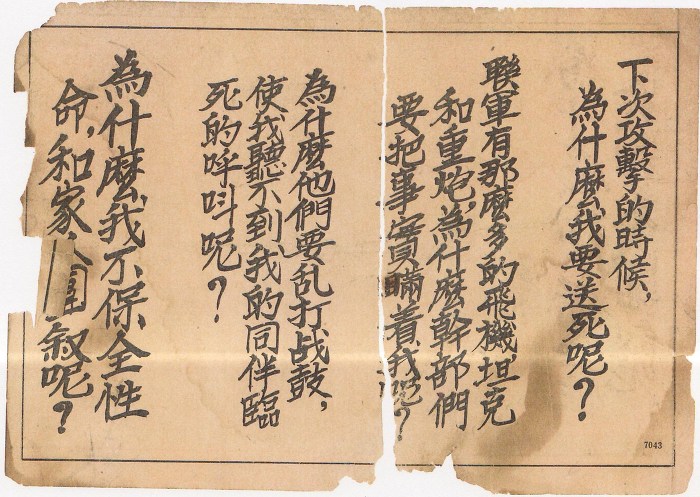 下次攻擊的時候,
為什麼我要送死呢?
聯軍有那麼多的飛機,坦克
和重炮,為什麼幹部們
要把事實瞞着我呢?
為什麼他們要乱打战鼓,
使我聽不到我的同伴臨
死的呼呌呢?
為什麼我不保全性
命,和家人團叙呢?
7043